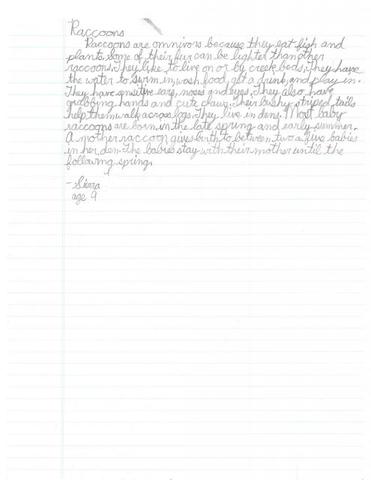 Raccoons
Raccoons are omnivors because they eat fish and
plants. some of their fur can be lighter than other
raccoons. They like to live on or by creek beds. They have
the water to swim in, wash food, get a drink, and play in.
They have sensitive ears, noses and eyes. They also have
grabbing hands and cute claws. Their bushy striped tails
help them walk across logs. They live in dens. Most baby
raccoons are born in the late spring and early summer.
A mother raccoon gives birth to between two a five babies
in her den. The babies stay with their mother until the
following spring.
-Sierra
age 9